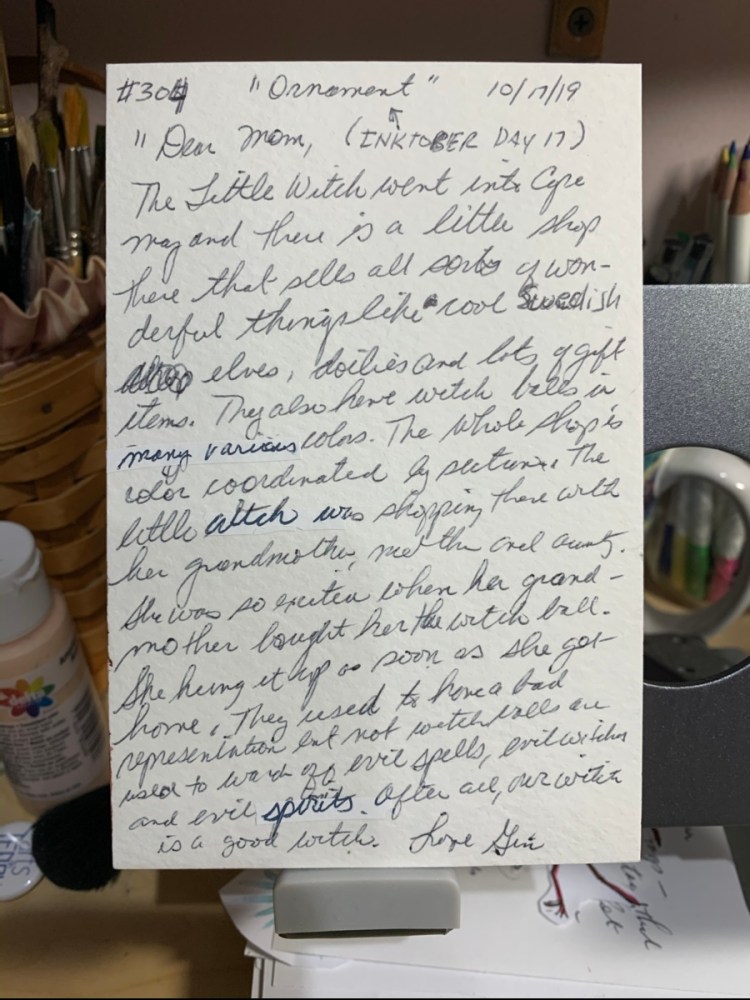 #304 "Ornament" 10/17/19
"Dear Mom, (INKTOBER DAY 17)
The Little Witch went into Cape
may and there is a little shop
there that sells all sorts of won-
derful things like cool Swedish
elves, doilies and lots of gift
items. They also have witch balls in
many various colors. The whole shop is
color coordinated by sections. The
little witch was shopping there with
her grandmother, mother and aunty.
She was so excited when her grand-
mother bought her the witch ball.
She hung it up as soon as she got
home. They used to have a bad
representation but not witch balls are
used to ward off evil spells, evil witches
and evil spirits. After all, our witch
is a good witch. Love Gin